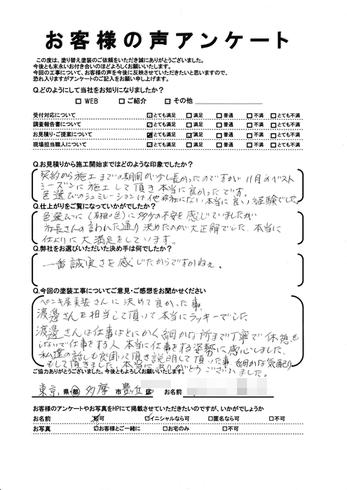 お客様の声アンケート
この度は、塗り替え塗装のご依頼をいただき誠にありがとうございました。
今後とも末永いお付き合いのほどよろしくお願いいたします。
今回の工事について、お客様の声を今後に反映させていただきたいと思いますので、
恐れ入りますがアンケートのご記入をお願い申し上げます。
Q.どのようにして当社をお知りになりましたか?
□ WEB □ ご紹介 □ その他
受付対応について ☑とても満足 □満足 □普通 □不満 □とても不満
調査報告書について ☑とても満足 □満足 □普通 □不満 □とても不満
お見積り・ご提案について ☑とても満足 □満足 □普通 □不満 □とても不満
現場担当職人について ☑とても満足 □満足 □普通 □不満 □とても不満
Q.お見積りから施工開始まではどのような印象でしたか?
契約から施工までの期間が少し長かったのですが 11月のベスト
シーズンに施工して頂き本当に良かったです。
色選びのシミュレーションは他社にない本当に良い経験でした
Q.仕上がりをご覧になっていかがでしたか?
色選びに(相性の色)に多少の不安を感じていましたが
社長さんの言われた通り決めたのが大正解でした、本当に
仕上りに大満足をしています。
Q.弊社をお選びいただいた決め手は何でしたか?
一番誠実さを感じたからですかねぇ。
Q.今回の塗装工事についてご意見・ご感想をお聞かせください
ペンキ屋美装さんに決めて良かった事
渡邊さんを担当して頂いて本当にラッキーでした。
渡邊さんは仕事はとにかく細かな所まで丁寧で休憩も
しないで仕事をする人 本当に仕事をする姿勢に感心しました。
私達の話しも良く聞いて頂き説明して頂いた事 細かな気配り
をして頂きました、本当にありがとうございました。
ご協力ありがとうございました。今後ともよろしくお願いいたします。
東京 県 都 多摩 市 豊ヶ丘 区 お名前
お客様のアンケートやお写真をHPに掲載させていただきたいのですが、いかがでしょうか
お名前 可 ☑イニシャルなら可 □匿名なら可 □不可
お写真 ☑お客様とご一緒に □お宅のみ □不可